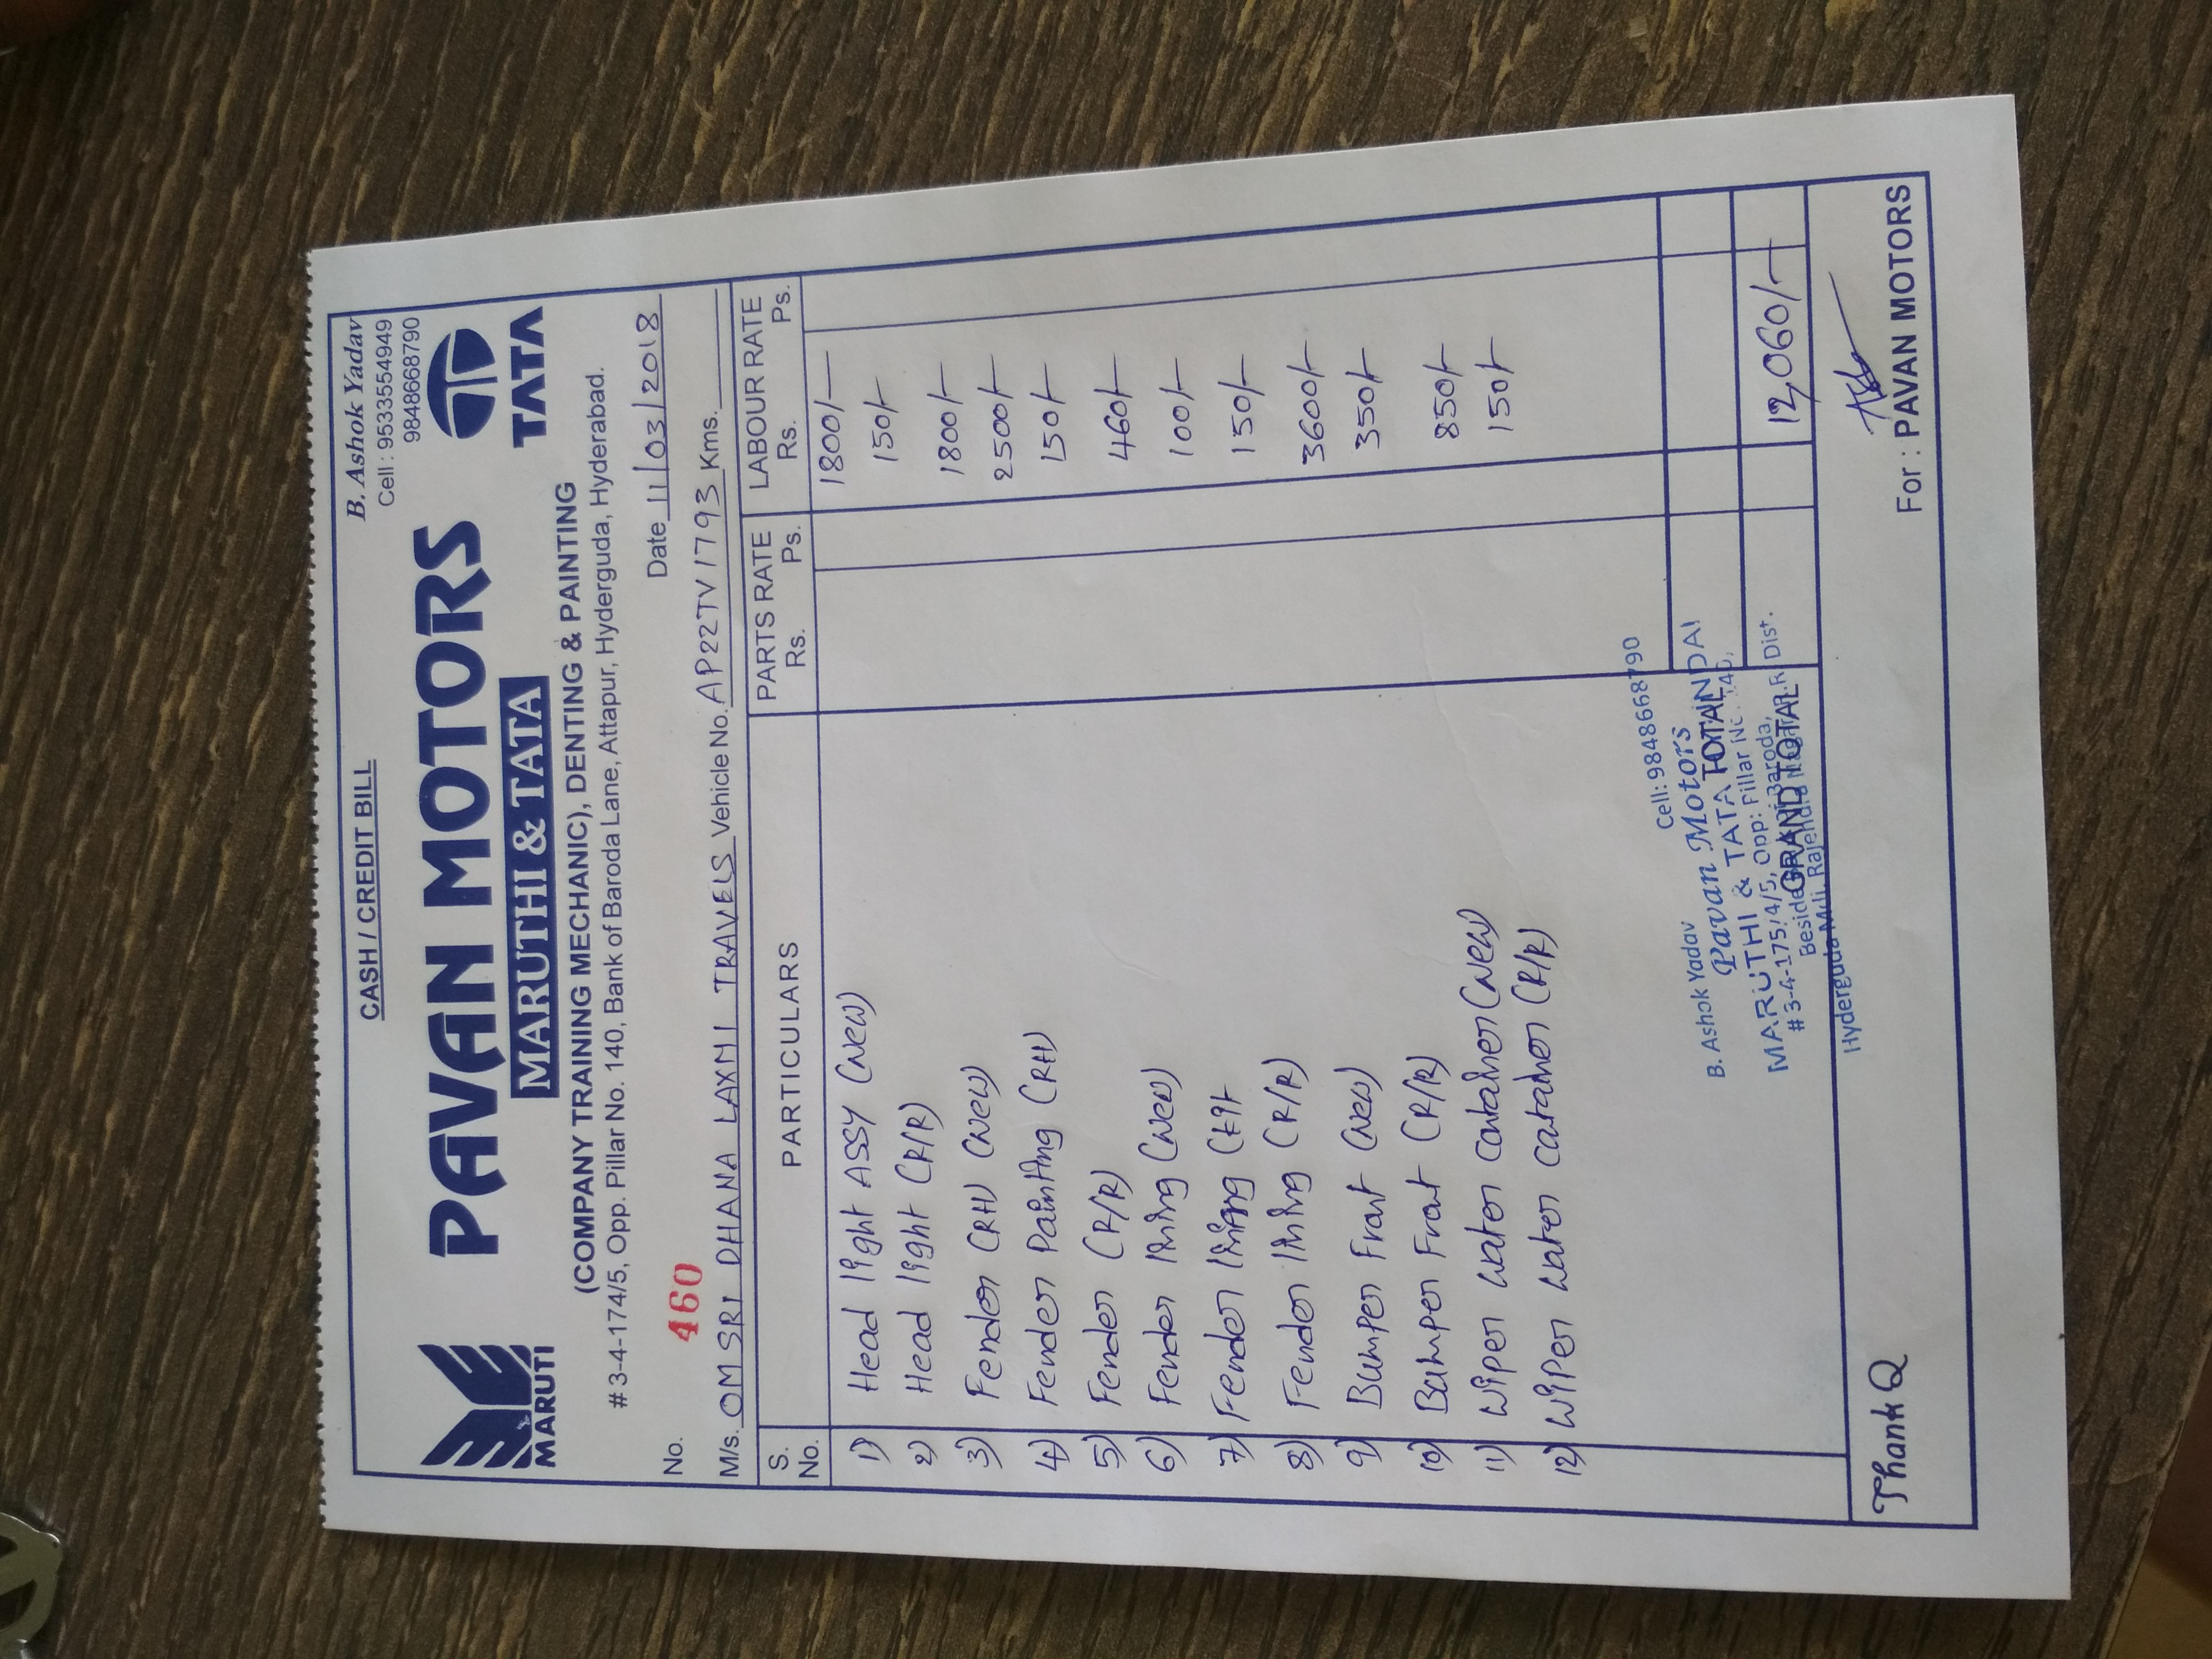 CASH / CREDIT BILL
B. Ashok Yadav
Cell : 9533554949
9848668790
MARUTI
PAVAN MOTORS
MARUTHI & TATA
TATA
(COMPANY TRAINING MECHANIC), DENTING & PAINTING
# 3-4-174/5, Opp. Pillar No. 140, Bank of Baroda Lane, Attapur, Hyderguda, Hyderabad.
No. 460 Date 11/03/2018
M/s. OM SRI DHANA LAXMI TRAVELS Vehicle No. AP22TV1793 Kms.
S. No. PARTICULARS PARTS RATE Rs. Ps. LABOUR RATE Rs. Ps.
1) Head light ASSY (New) 1800/-
2) Head light (R/R) 150/-
3) Fender (RH) (New) 1800/-
4) Fender Painting (RH) 2500/-
5) Fender (R/R) 150/-
6) Fender lining (New) 460/-
7) Fender lining 100/-
8) Fender lining (R/R) 150/-
9) Bumper Front (New) 3600/-
10) Bumper Front (R/R) 350/-
11) Wiper water container (New) 850/-
12) Wiper water container (R/R) 150/-
B. Ashok Yadav Cell: 9848668790
Pavan Motors
MARUTHI & TATA
# 3-4-175/4/5, Opp: Pillar No. 140,
Beside Baroda,
Hyderguda Dist.
TOTAL
GRAND TOTAL 12,060/-
Thank Q
For : PAVAN MOTORS